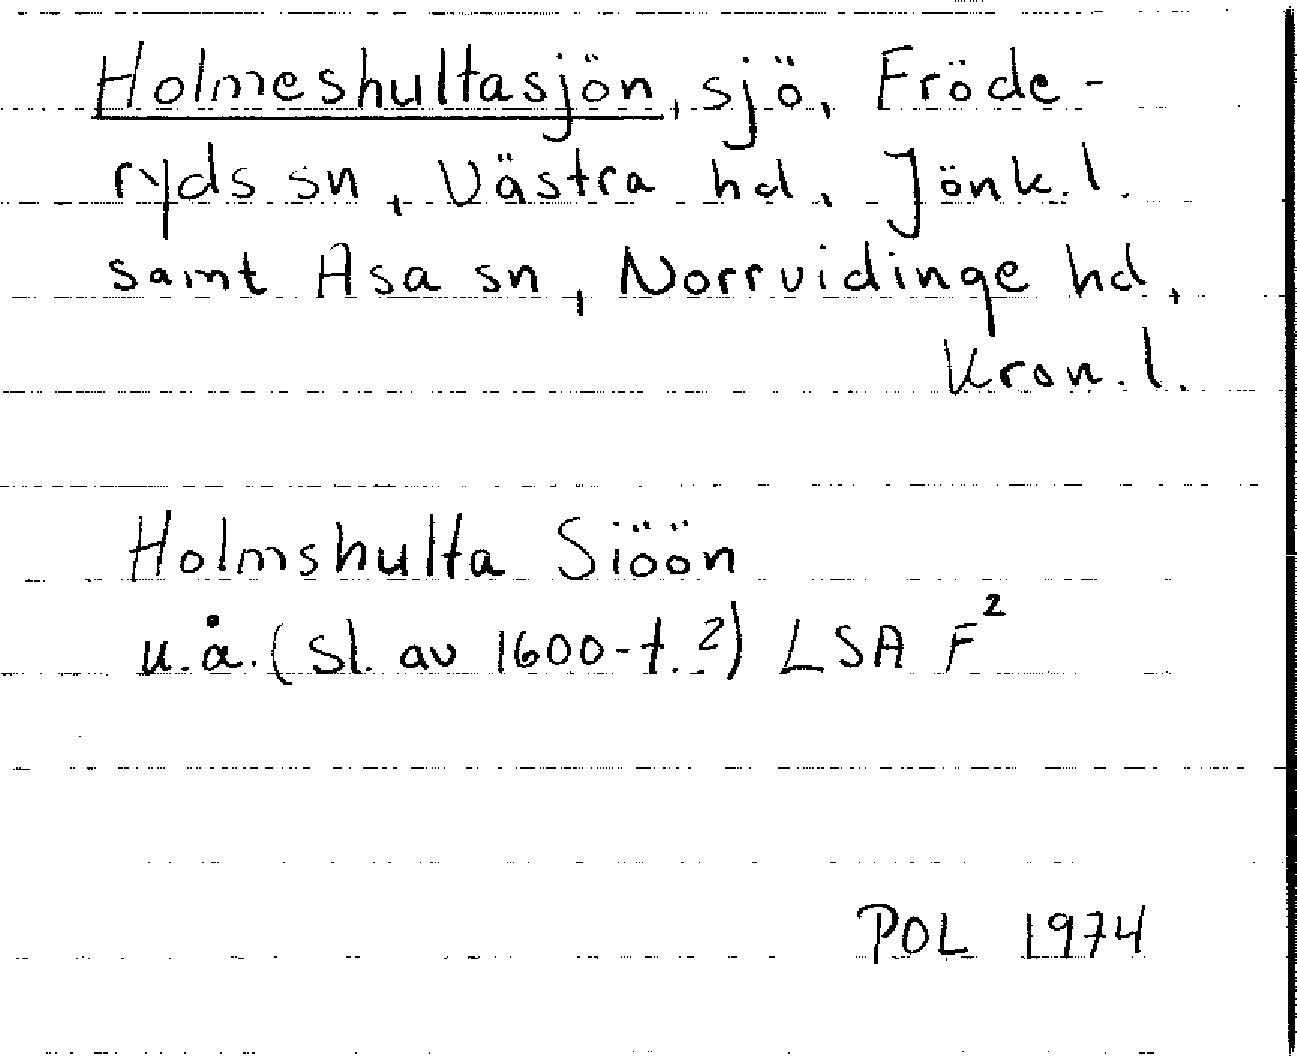 Holmeshultasjön, sjö, Fröde-
ryds sn, Västra hd, Jönk.l.
samt Asa sn, Norrvidinge hd,
Kron.l.
Holmshulta Siöön
u.å. (sl. av 1600-t.?) LSA F²
POL 1974